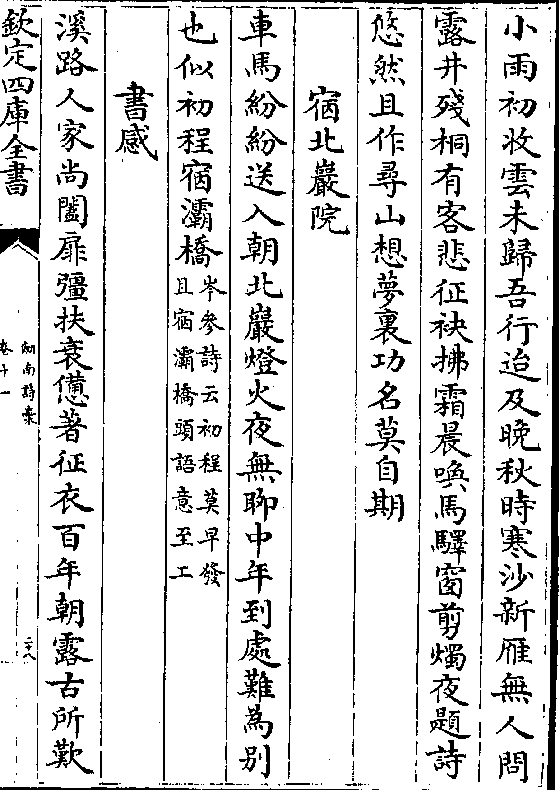 小雨初收雲未歸吾行迨及晚秋時寒沙新雁無人問
露井殘桐有客悲征袂拂霜晨喚馬驛窗剪燭夜題詩
悠然且作尋山想夢裏功名莫自期
宿北巖院
車馬紛紛送入朝北巖燈火夜無聊中年到處難為別
也似初程宿灞橋岑參詩云初程莫早發
且宿灞橋頭語意至工
書感
溪路人家尚闔扉彊扶衰憊著征衣百年朝露古所歎
欽定四庫全書
劍南詩稾
卷十一
二十八